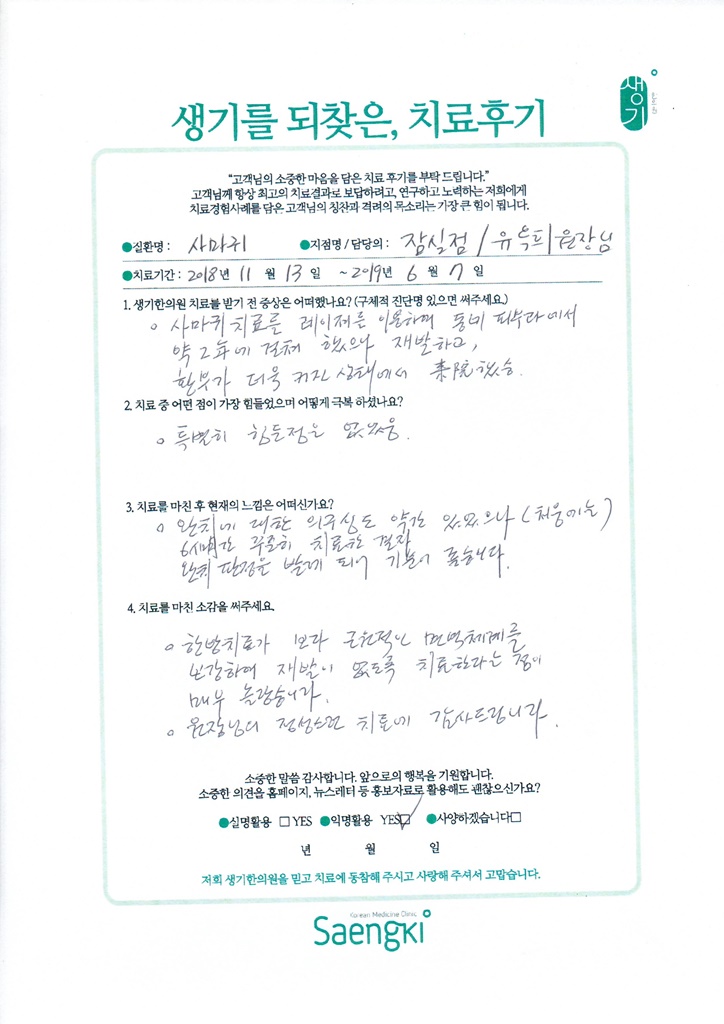 생기
한의원
생기를 되찾은, 치료후기
"고객님의 소중한 마음을 담은 치료 후기를 부탁 드립니다."
고객님께 항상 최고의 치료결과로 보답하려고, 연구하고 노력하는 저희에게
치료경험사례를 담은 고객님의 칭찬과 격려의 목소리는 가장 큰 힘이 됩니다.
●질환명 : 사마귀 ●지점명 / 담당의 : 잠실점 / 유옥희 원장님
●치료기간 : 2018년 11 월 13 일 ~2019년 6 월 7 일
1. 생기한의원 치료를 받기 전 증상은 어떠했나요? (구체적 진단명 있으면 써주세요.)
o 사마귀 치료를 레이저를 이용하여 동네 피부과에서
약 2年에 걸쳐 했으나 재발하고,
환부가 더욱 커진 상태에서 来院했음.
2. 치료 중 어떤 점이 가장 힘들었으며 어떻게 극복 하셨나요?
o 특별히 힘든점은 없었음.
3. 치료를 마친 후 현재의 느낌은 어떠신가요?
o 완치에 대한 의구심도 약간 있었으나 (처음에는)
6개月간 꾸준히 치료한 결과
완치 판정을 받게 되어 기분이 좋습니다.
4. 치료를 마친 소감을 써주세요.
o 한방치료가 보다 근원적인 면역체계를
보강하여 재발이 없도록 치료한다는 점이
매우 놀랍습니다.
o 원장님의 정성스런 치료에 감사드립니다.
소중한 말씀 감사합니다. 앞으로의 행복을 기원합니다.
소중한 의견을 홈페이지, 뉴스레터 등 홍보자료로 활용해도 괜찮으신가요?
●실명활용 □ YES ●익명활용 YES☑ ●사양하겠습니다□
년 월 일
저희 생기한의원을 믿고 치료에 동참해 주시고 사랑해 주셔서 고맙습니다.
Korean Medicine Clinic
Saengki